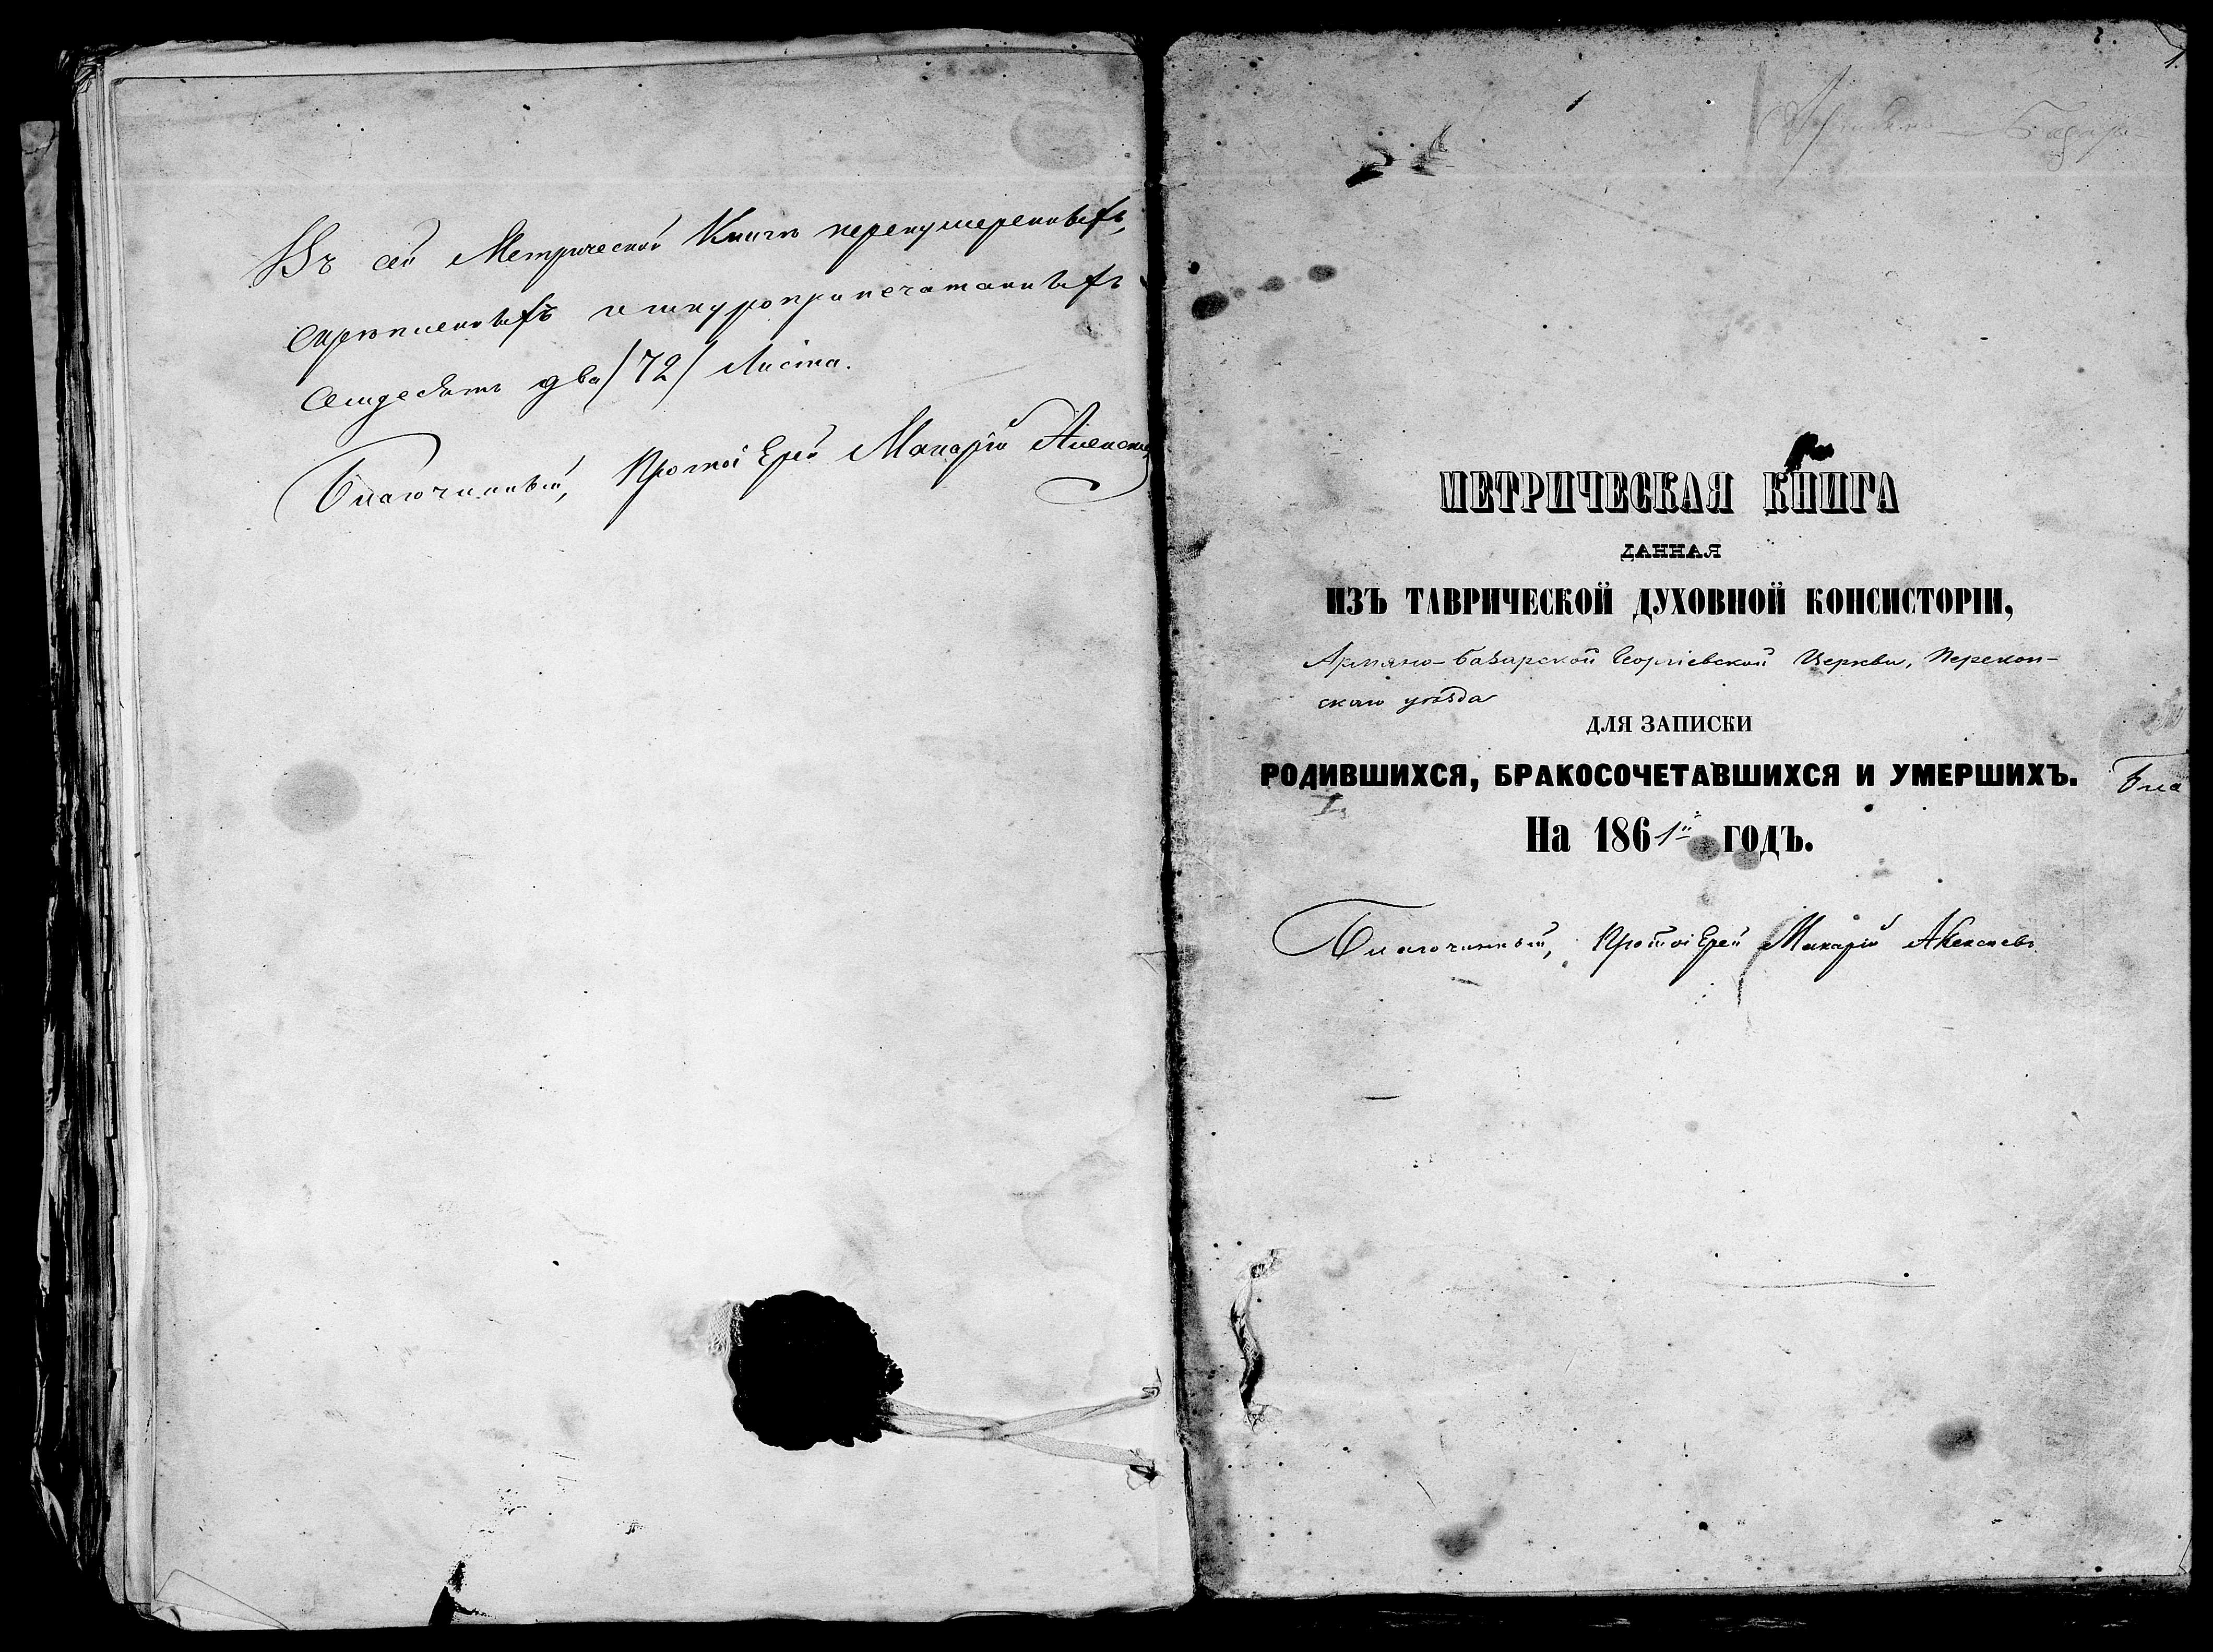 Въ сей Метрической Книгѣ перенумерованныхъ,
скрѣпленныхъ и шнуроприпечатанныхъ
семдесятъ два /72/ листа.
Благочинный, Протоіерей Макарій Алексѣев
1
Армяно-Базар
МЕТРИЧЕСКАЯ КНИГА
ДАННАЯ
ИЗЪ ТАВРИЧЕСКОЙ ДУХОВНОЙ КОНСИСТОРІИ,
Армяно-Базарской Георгіевской Церкви, Перекоп-
скаго уѣзда
ДЛЯ ЗАПИСКИ
РОДИВШИХСЯ, БРАКОСОЧЕТАВШИХСЯ И УМЕРШИХЪ.
Бла
На 1861й ГОДЪ.
Благочинный, Протоіерей Макарій Алексѣевъ